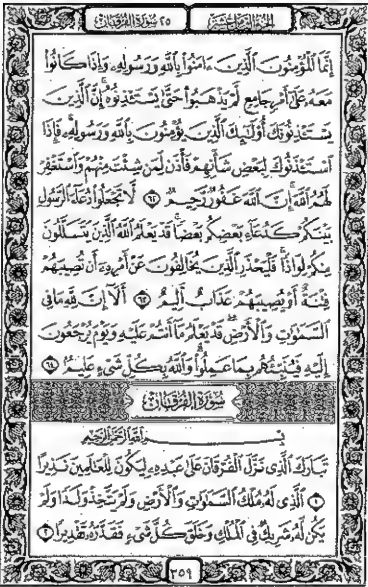 الجزء الثامن عشر ٢٥ سورة الفرقان
إِنَّمَا الْمُؤْمِنُونَ الَّذِينَ ءَامَنُوا بِاللَّهِ وَرَسُولِهِ وَإِذَا كَانُوا
مَعَهُ عَلَىٰ أَمْرٍ جَامِعٍ لَّمْ يَذْهَبُوا حَتَّىٰ يَسْتَـْٔذِنُوهُ إِنَّ الَّذِينَ
يَسْتَـْٔذِنُونَكَ أُولَٰئِكَ الَّذِينَ يُؤْمِنُونَ بِاللَّهِ وَرَسُولِهِ فَإِذَا
اسْتَـْٔذَنُوكَ لِبَعْضِ شَأْنِهِمْ فَأْذَن لِّمَن شِئْتَ مِنْهُمْ وَاسْتَغْفِرْ
لَهُمُ اللَّهَ إِنَّ اللَّهَ غَفُورٌ رَّحِيمٌ ٦٢ لَّا تَجْعَلُوا دُعَاءَ الرَّسُولِ
بَيْنَكُمْ كَدُعَاءِ بَعْضِكُم بَعْضًا قَدْ يَعْلَمُ اللَّهُ الَّذِينَ يَتَسَلَّلُونَ
مِنكُمْ لِوَاذًا فَلْيَحْذَرِ الَّذِينَ يُخَالِفُونَ عَنْ أَمْرِهِ أَن تُصِيبَهُمْ
فِتْنَةٌ أَوْ يُصِيبَهُمْ عَذَابٌ أَلِيمٌ ٦٣ أَلَا إِنَّ لِلَّهِ مَا فِي
السَّمَٰوَٰتِ وَالْأَرْضِ قَدْ يَعْلَمُ مَا أَنتُمْ عَلَيْهِ وَيَوْمَ يُرْجَعُونَ
إِلَيْهِ فَيُنَبِّئُهُم بِمَا عَمِلُوا وَاللَّهُ بِكُلِّ شَيْءٍ عَلِيمٌ ٦٤
سورة الفرقان
بِسْمِ اللَّهِ الرَّحْمَٰنِ الرَّحِيمِ
تَبَارَكَ الَّذِي نَزَّلَ الْفُرْقَانَ عَلَىٰ عَبْدِهِ لِيَكُونَ لِلْعَالَمِينَ نَذِيرًا
١ الَّذِي لَهُ مُلْكُ السَّمَٰوَٰتِ وَالْأَرْضِ وَلَمْ يَتَّخِذْ وَلَدًا وَلَمْ
يَكُن لَّهُ شَرِيكٌ فِي الْمُلْكِ وَخَلَقَ كُلَّ شَيْءٍ فَقَدَّرَهُ تَقْدِيرًا ٢
٣٥٩